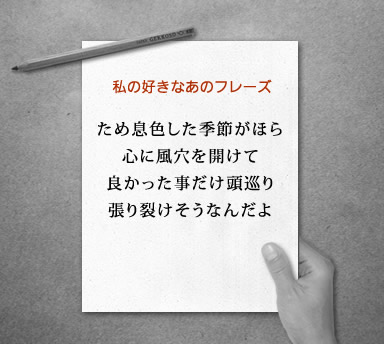 私の好きなあのフレーズ
ため息色した季節がほら
心に風穴を開けて
良かった事だけ頭巡り
張り裂けそうなんだよ